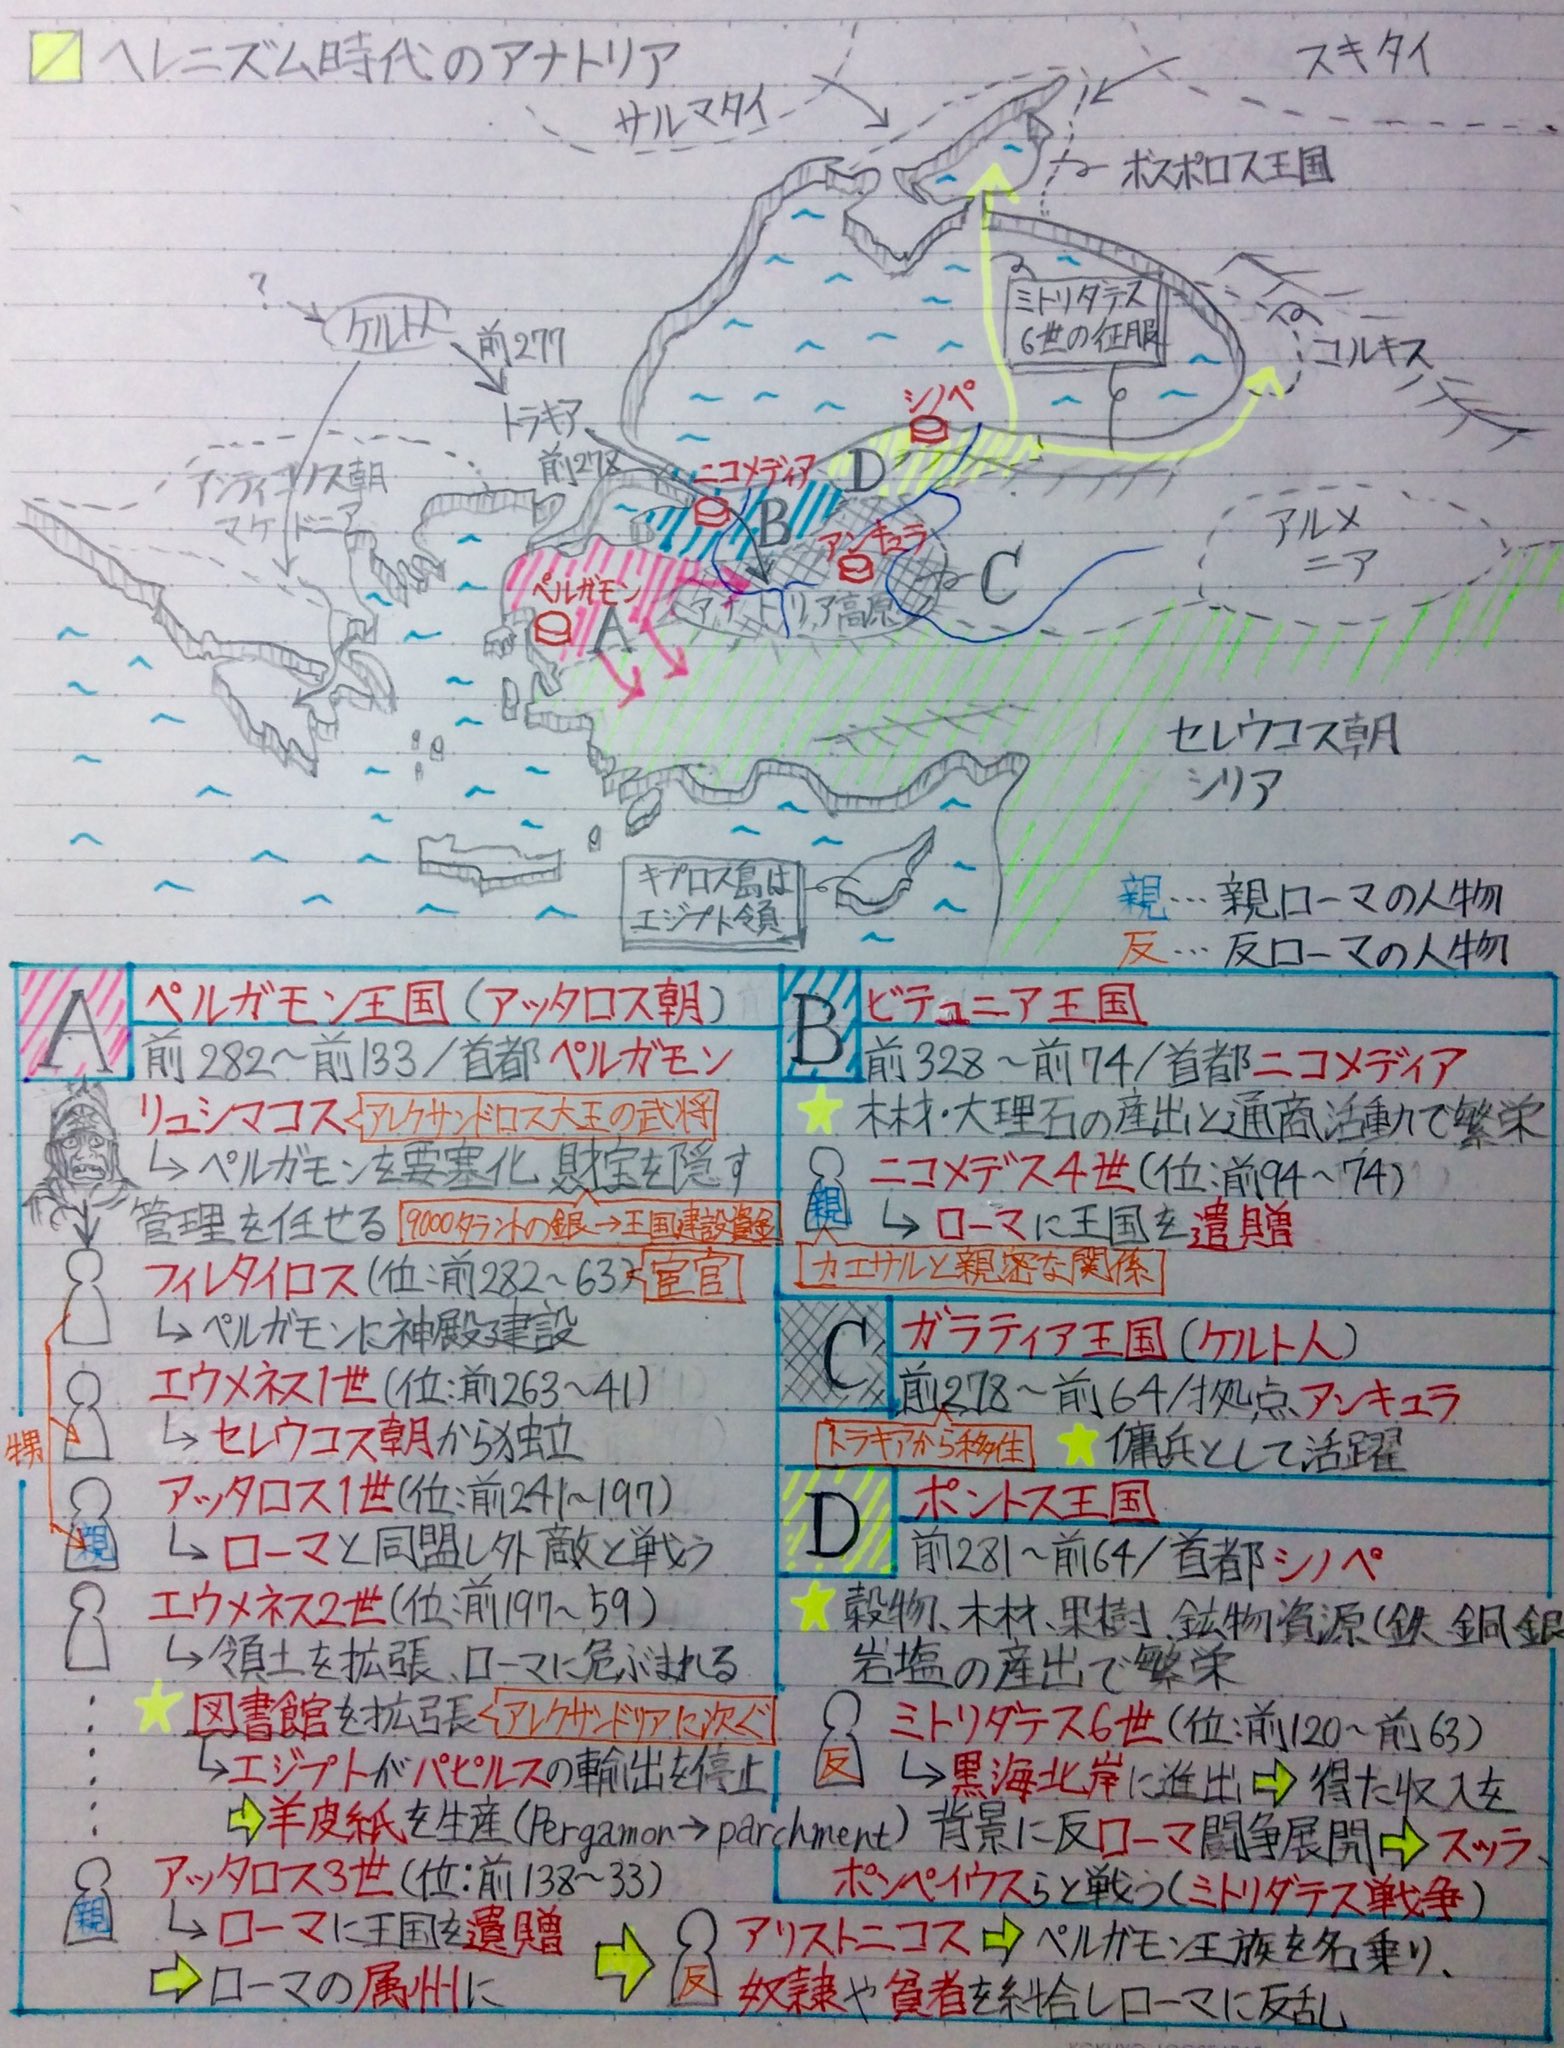 ヘレニズム時代のアナトリア
スキタイ
サルマタイ
ボスポロス王国
?
ケルト人
前277
ミトリダテス
6世の征服
コルキス
シノペ
トラキア
前278
ニコメディア
D
アンティゴノス朝
マケドニア
B
アンキュラ
アルメ
ニア
C
ペルガモン
アナトリア高原
A
セレウコス朝
シリア
キプロス島は
エジプト領
親…親ローマの人物
反…反ローマの人物
A ペルガモン王国(アッタロス朝)
前282〜前133/首都ペルガモン
リュシマコス アレクサンドロス大王の武将
↳ペルガモンを要塞化、財宝を隠す
管理を任せる 9000タラントの銀→王国建設資金
フィレタイロス(位:前282〜63) 宦官
↳ペルガモンに神殿建設
エウメネス1世(位:前263〜41)
↳セレウコス朝から独立
甥
アッタロス1世(位:前241〜197)
親 ↳ローマと同盟し外敵と戦う
エウメネス2世(位:前197〜59)
↳領土を拡張、ローマに危ぶまれる
★図書館を拡張 アレクサンドリアに次ぐ
↳エジプトがパピルスの輸出を停止
⇨羊皮紙を生産(Pergamon→parchment)
アッタロス3世(位:前138〜33)
親 ↳ローマに王国を遺贈
⇨ローマの属州に
B ビテュニア王国
前328〜前74/首都ニコメディア
★木材・大理石の産出と通商活動で繁栄
ニコメデス4世(位:前94〜74)
親 ↳ローマに王国を遺贈
カエサルと親密な関係
C ガラティア王国(ケルト人)
前278〜前64/拠点アンキュラ
トラキアから移住 ★傭兵として活躍
D ポントス王国
前281〜前64/首都シノペ
★穀物、木材、果樹、鉱物資源(鉄、銅、銀
岩塩の産出で繁栄
ミトリダテス6世(位:前120〜前63)
反 ↳黒海北岸に進出⇨得た収入を
背景に反ローマ闘争展開⇨スッラ、
ポンペイウスらと戦う(ミトリダテス戦争)
⇨反 アリストニコス⇨ペルガモン王族を名乗り、
奴隷や貧者を糾合しローマに反乱